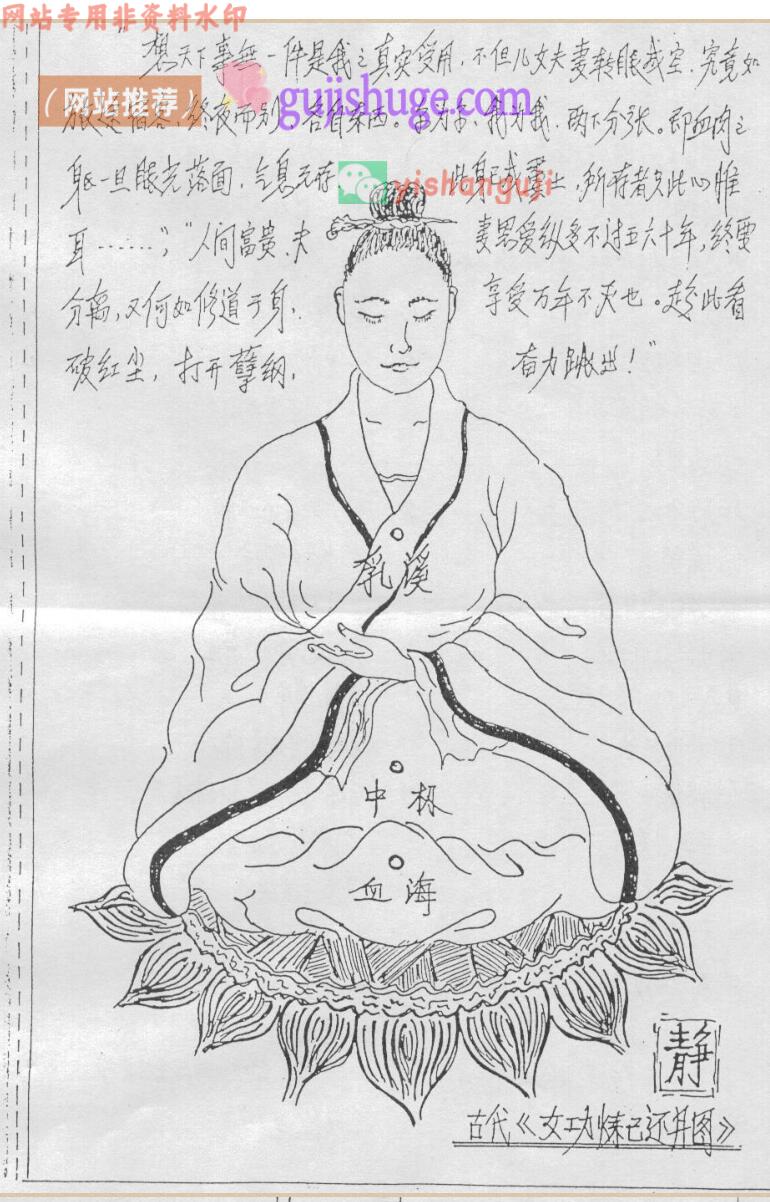 网站专用非资料水印
"想天下事無一件是我之真实受用,不但儿女夫妻转眼成空.究竟如
(网站推荐)
gujishuge.com
终夜而别,各自东西。 为 ,我为我.两下分张。即血肉之
身,一旦眼光落面,气息无存, 此身已成 土,所存者只此心惟
yishanguji
耳……","人间富贵.夫 妻恩爱纵多不过五六十年,终要
分离,又何如修道于身. 享受万年不灭也。趁此看
破红尘,打开孽纲. 奋力跳出!"
乳溪
中极
血海
靜
古代《女功炼己还丹图》